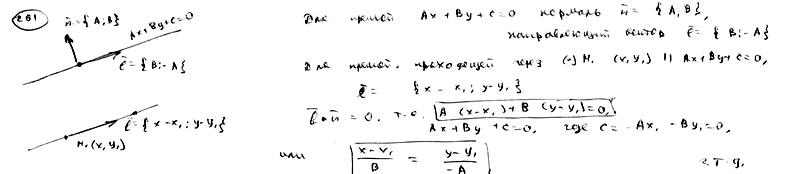 261
n̄ = {A, B}
Ax+By+c=0
ē = {B; -A}
ē = {x-x₁; y-y₁}
M₁(x₁y₁)
Для прямой Ax+By+c=0 нормаль n̄ = {A, B},
направляющий вектор ē = {B; -A}
Для прямой, проходящей через (·) M₁ (x₁y₁) || Ax+By+c=0,
ē = {x-x₁; y-y₁}
ē·n̄ = 0, т.е. A(x-x₁)+B(y-y₁)=0,
Ax+By+c=0, где c=-Ax₁-By₁=0,
или (x-x₁)/B = (y-y₁)/-A
ч.т.д.